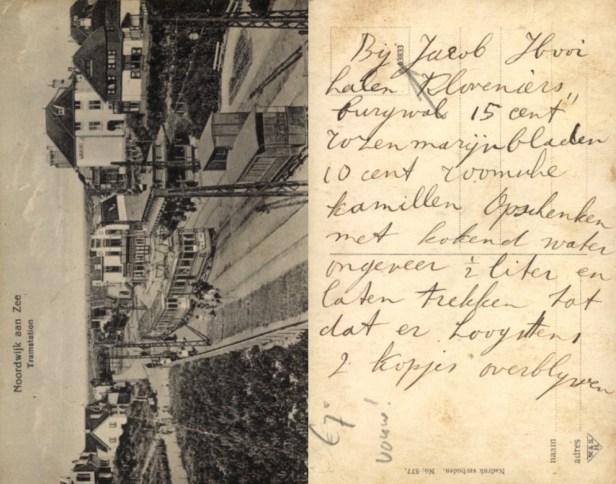 Noordwijk aan Zee
Tramstation
Bij Jacob Hooi
halen Kloveniers"
burgwal 15 cent
rozenmarijnbladen
10 cent roomsche
kamillen Opschenken
met kokend water
ongeveer ½ liter en
laten trekken tot
dat er hoogstens
2 kopjes overblijven
vouw!
naam
adres
Nadruk verboden. No. 877.